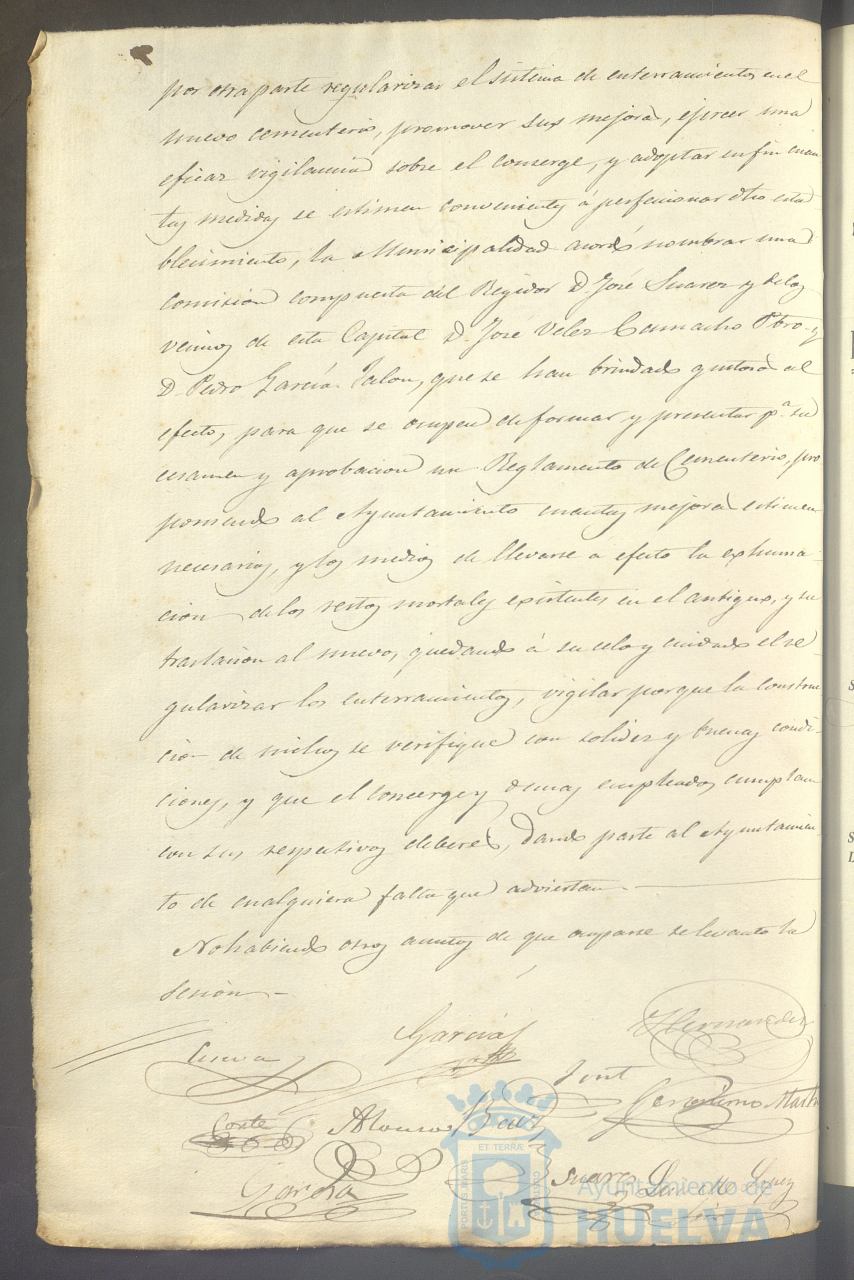 por otra parte regularizar el sistema de enterramientos en el
nuevo cementerio, promover sus mejoras, ejercer una
eficaz vigilancia sobre el conserge, y adoptar en fin cuan
tas medidas se estimen convenientes á perfeccionar dho esta
blecimiento, la Municipalidad acordó nombrar una
comision compuesta del Regidor D. José Suarez y de los
vecinos de esta Capital D. José Velez Camacho Pbro. y
D. Pedro García Jalon, que se han brindado gustosos al
efecto, para que se ocupen de formar y presentar pª. su
ecsamen y aprobacion un Reglamento de Cementerio, pro
poniendo al Ayuntamiento cuantas mejoras estimen
necesarias, y los medios de llevarse á efecto la exhuma-
cion de los restos mortales existentes en el antiguo, y su
traslacion al nuevo, quedando á su celo y cuidado el re-
gularizar los enterramientos, vigilar porque la construc
cion de nichos se verifique con solidez y buenas condi-
ciones, y que el concerge y demas empleados cumplan
con sus respectivos deberes, dando parte al Ayuntamien
to de cualquiera falta que adviertan.
No habiendo otros asuntos de que ocuparse se levantó la
sesion -
García Hernandez
Cueva
Gerónimo Martin
Conte Alonso Baez
Garcia Suarez
PORTUS MARIS ET TERRÆ CUSTODIA
Ayuntamiento de
HUELVA